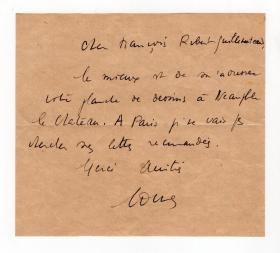 Cher François Robert
le mieux est de m'adresser
votre planche de dessins à Neauphle
le Château. A Paris je ne vais pas
chercher mes lettres recommandées.
Merci Amitiés